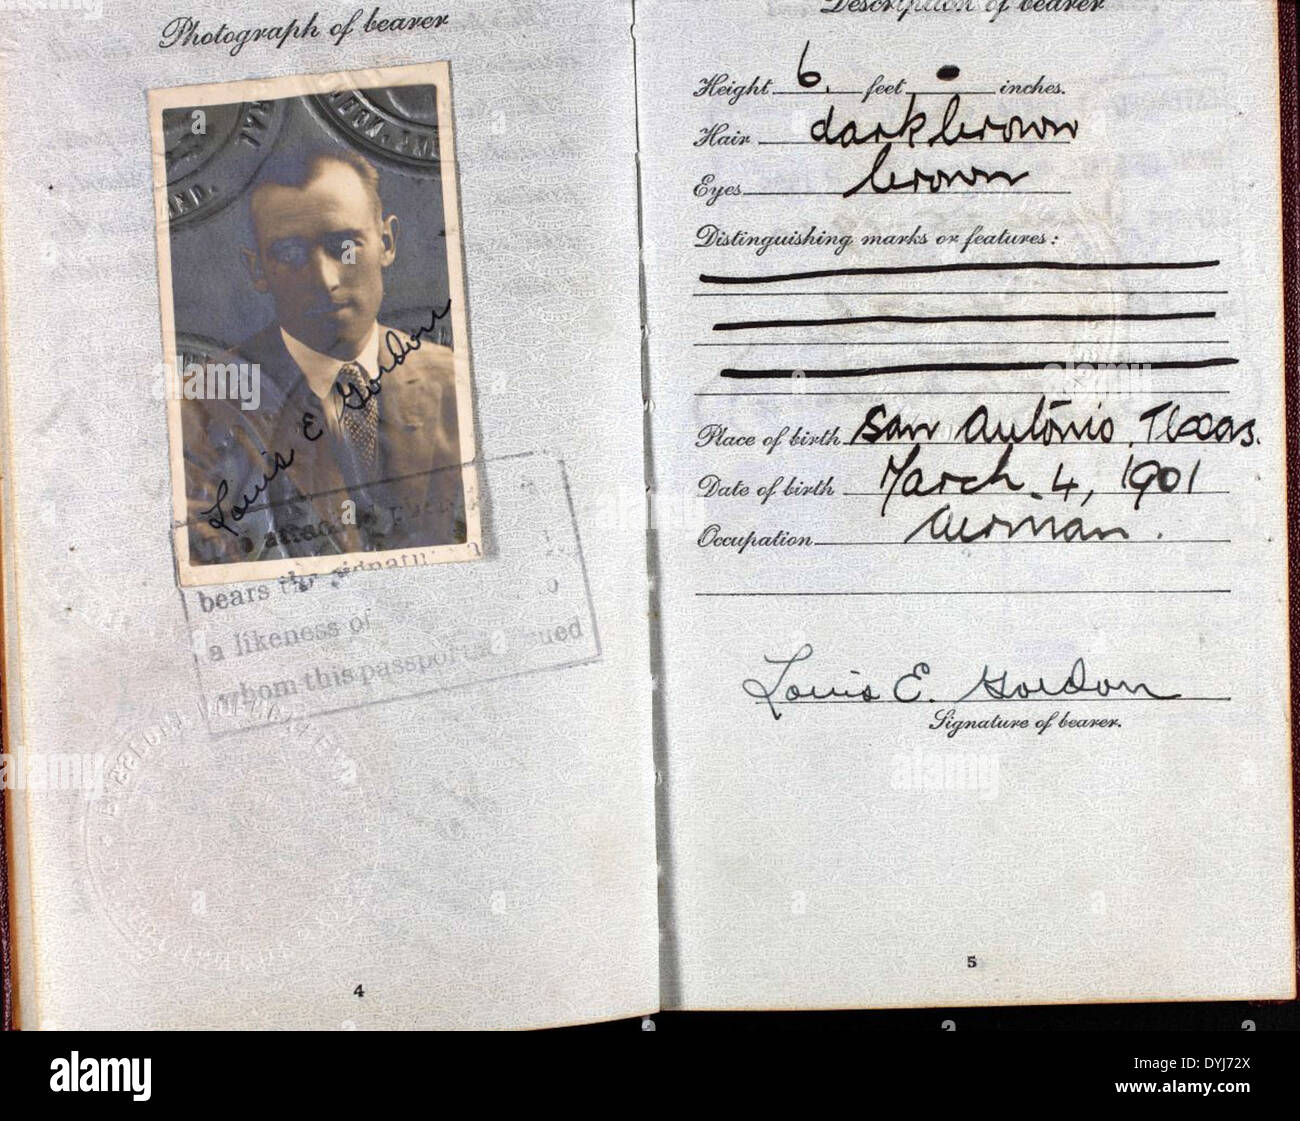 Photograph of bearer
Louis E Gordon
bears the signatu
a likeness of
whom this passport is issued
4
Description of bearer
Height 6. feet inches.
Hair dark brown
Eyes brown
Distinguishing marks or features:
Place of birth San Antonio, Texas.
Date of birth March 4, 1901
Occupation Airman.
Louis E. Gordon
Signature of bearer.
5
alamy
Image ID: DYJ72X
www.alamy.com